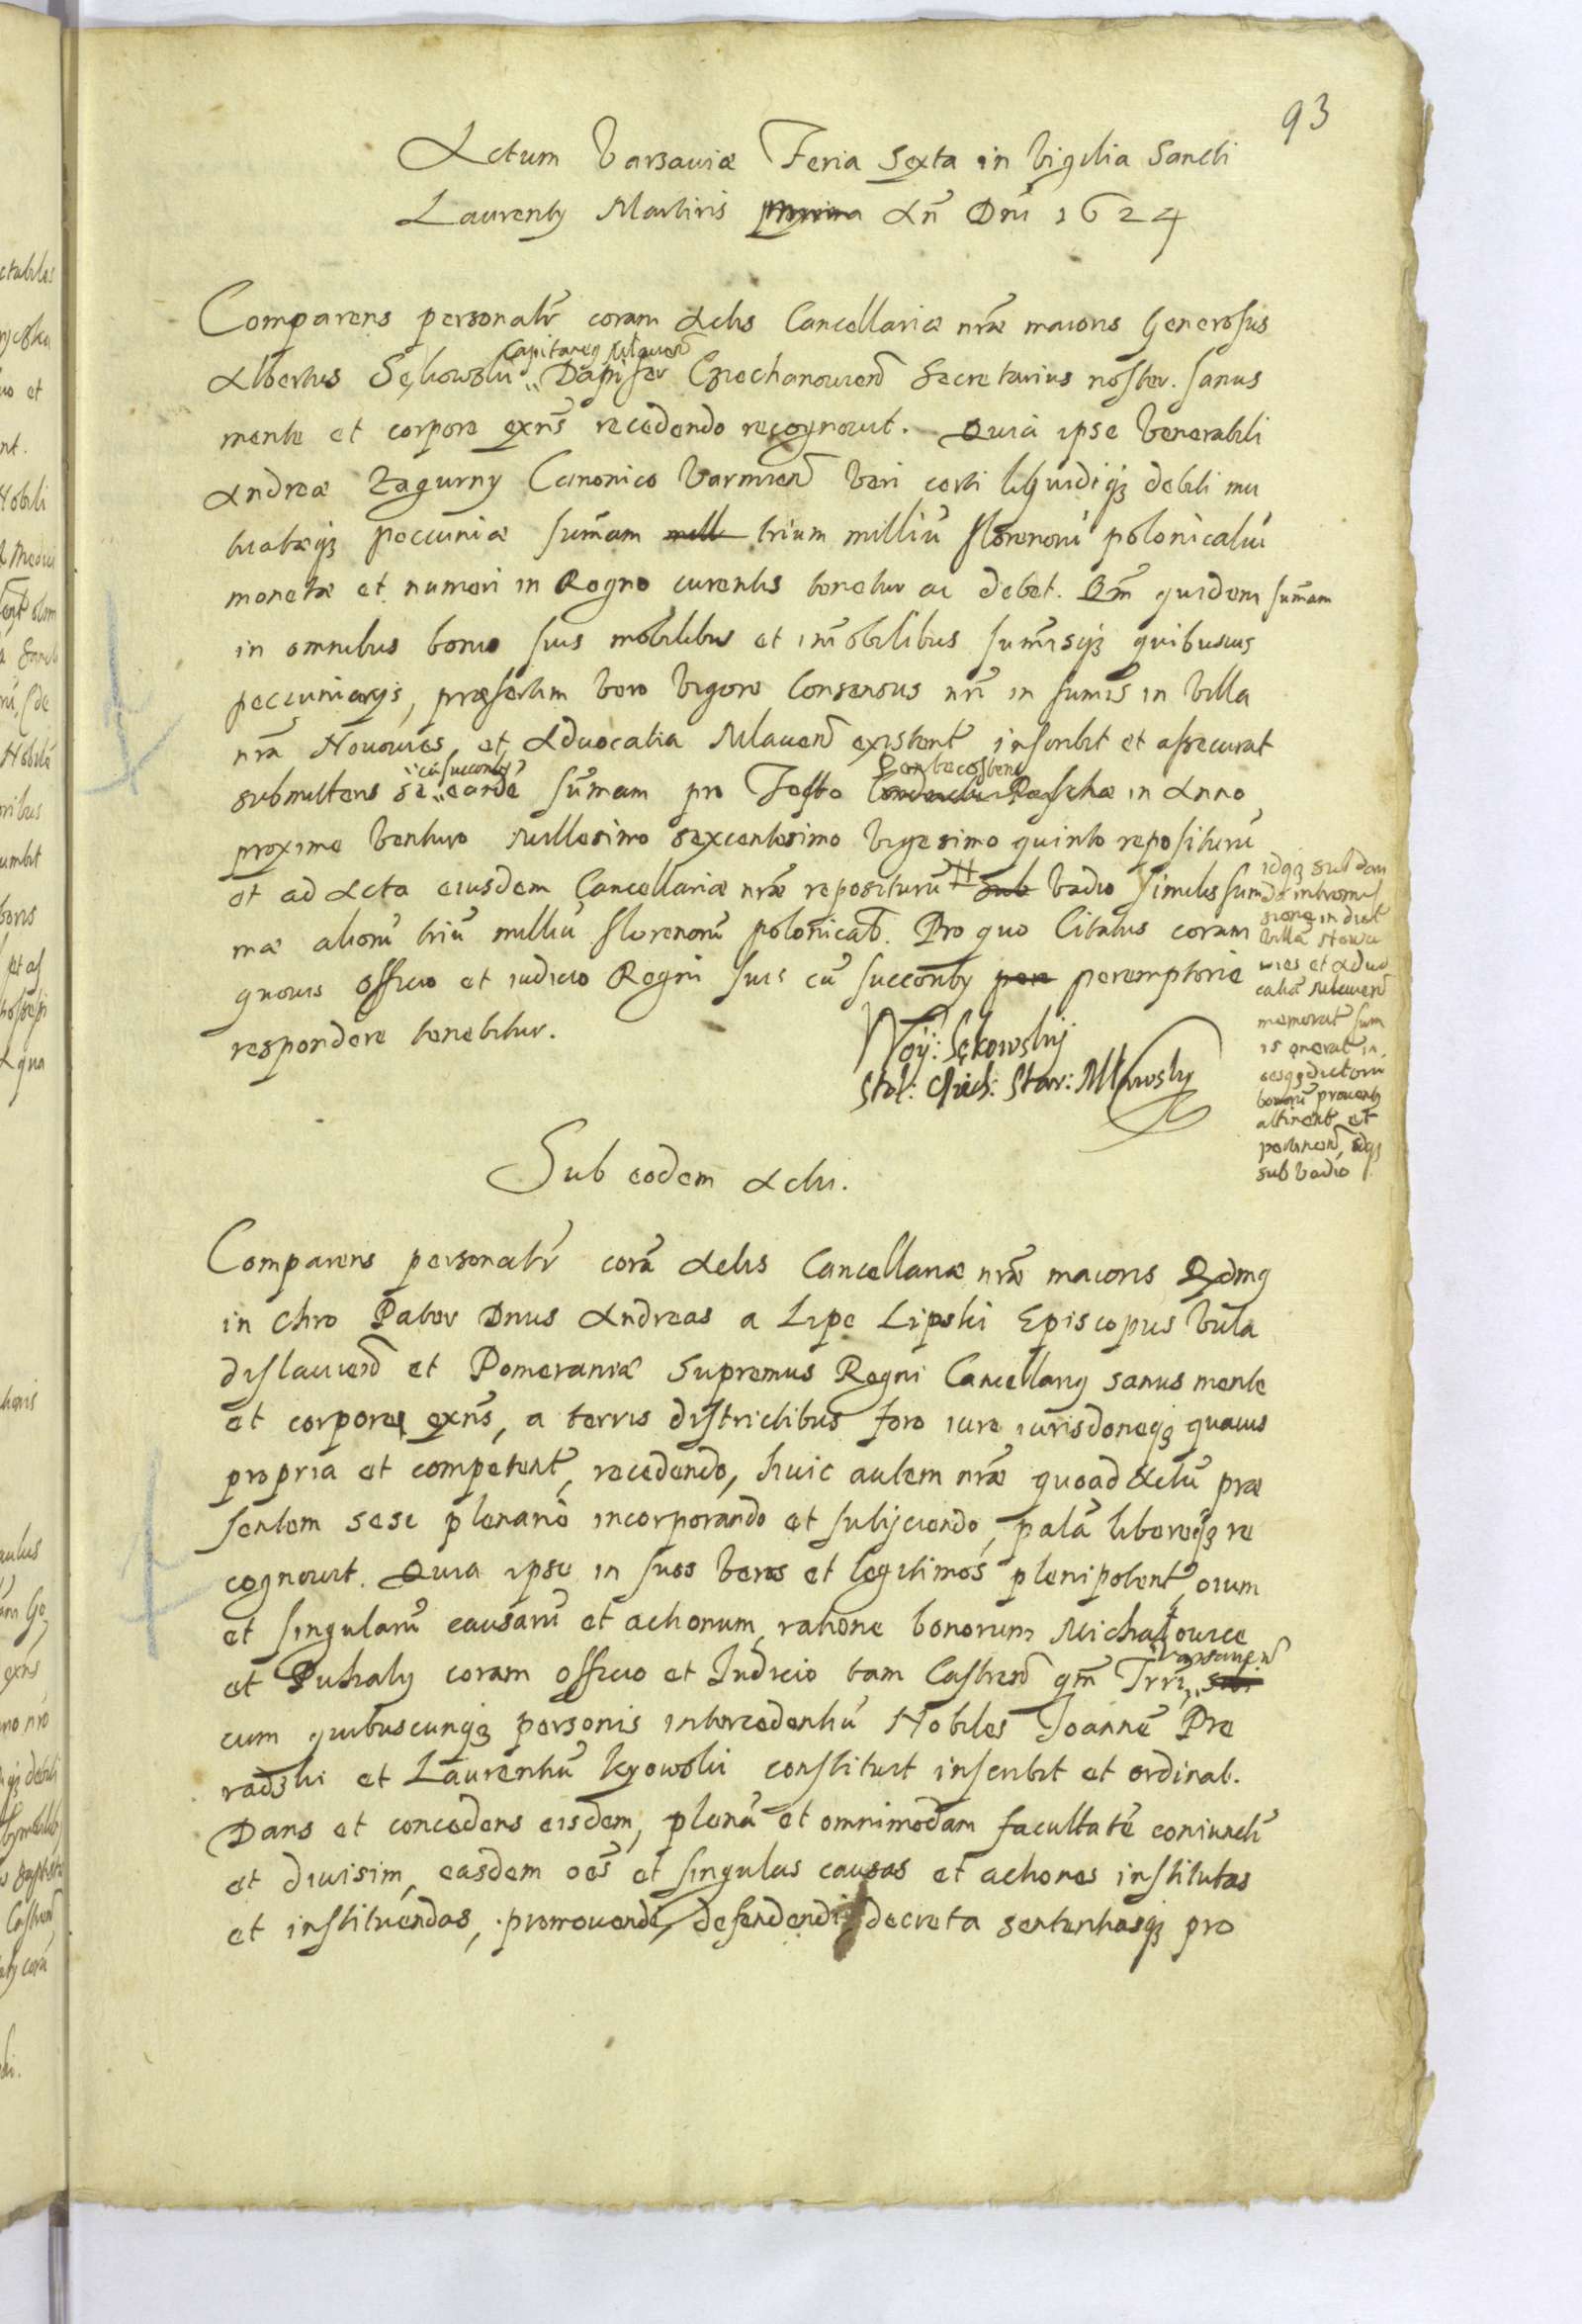 93
Actum Varsauiæ Feria Sexta in Vigilia Sancti
Laurentÿ Martiris An̄ Dnī 1624
Comparens personalr̄ coram Actis Cancellariæ nrāe maioris Generosus
Capitaneg Mlauen̄
Albertus Sękowski Dapifer Czechanouien̄ Secretarius noster. sanus
mente et corpore exnś recedendo recognouit. Quia ipse Venerabili
Andreæ Zagurny Canonico Varmien̄ veri certi liquidiq₃ debiti mu
tuatæq₃ pecuniæ sum̄am mill trium milliū florenorū polonicaliū
monetæ et numeri in Regno curentis tenetur ac debet. Qm̄ quidem sum̄am
in omnibus bonis suis mobilibus et im̄obilibus sum̄isq₃ quibusuis
pecuniarÿs, præsertim vero vigore Consensus nrī in sumis̄ in Villa
nrā Nouowies, et Aduocatia Mlauen̄ existent̄ inscribit et assecurat
cū succorib⁹ Pentecostene
submittens se eandē sum̄am pro Festo Paschæ in Anno
proxime venturo Millesimo sexcentesimo vigesimo quinto repositurū
et ad Acta eiusdem Cancellariæ nrāe repositurū # Sub vadio similis sum
mæ aliorū triū milliū florenorū polonical̄. Pro quo Citatus coram
quouis officio et iudicio Regni suis cū succorib⁹ per peremptorie
respondere tenebitur.
idq₃ sub dan
da intromis
sione in dict̄
villā Nowa
wies et Aduo
catiā Mlauen̄
memorat̄ sum
is onerat̄ in
eosq₃ dictorū
bonorū prouentꝰ
attinent̄ et
pertinen̄, idq₃
sub vadio
Woÿ: Sękowskÿ
Stol: Ciech: Star: Mławsky
Sub eodem Actu.
Comparens personalr̄ corā Actis Cancellariæ nrāe maioris Rxdmg
in Chro Pater Dnus Andreas a Lipe Lipski Episcopus Vula
dislauien̄ et Pomeraniæ Supremus Regni Cancellarÿ sanus mente
et corpore exnś, a terris districtibus foro iure iurisdoneq₃ quauis
propria et competent̄, recedendo, huic autem nrāe quoad Actū præ
sentem sese plenarie incorporando et subÿciendo, palā libereq₃ re
cognouit. Quia ipse in suos veros et legitimos plenipotent̄ oium
et singularū causarū et actionum, ratione bonorum Michałowice
Varsauien̄
et Puhały coram officio et Iudicio tam Castren̄ qm̄ Trri, sub
cum quibuscunq₃ personis intercedentiū Nobiles Joannē Pre
radzki et Laurentiū Kyowski constituit inscribit et ordinat.
Dans et concedens eisdem, plenā et omnimodam facultatē coniunctī
et diuisim, easdem oeś et singulas causas et actiones institutas
et instituendas, promouendi, defendendi, decreta sententiasq₃ pro